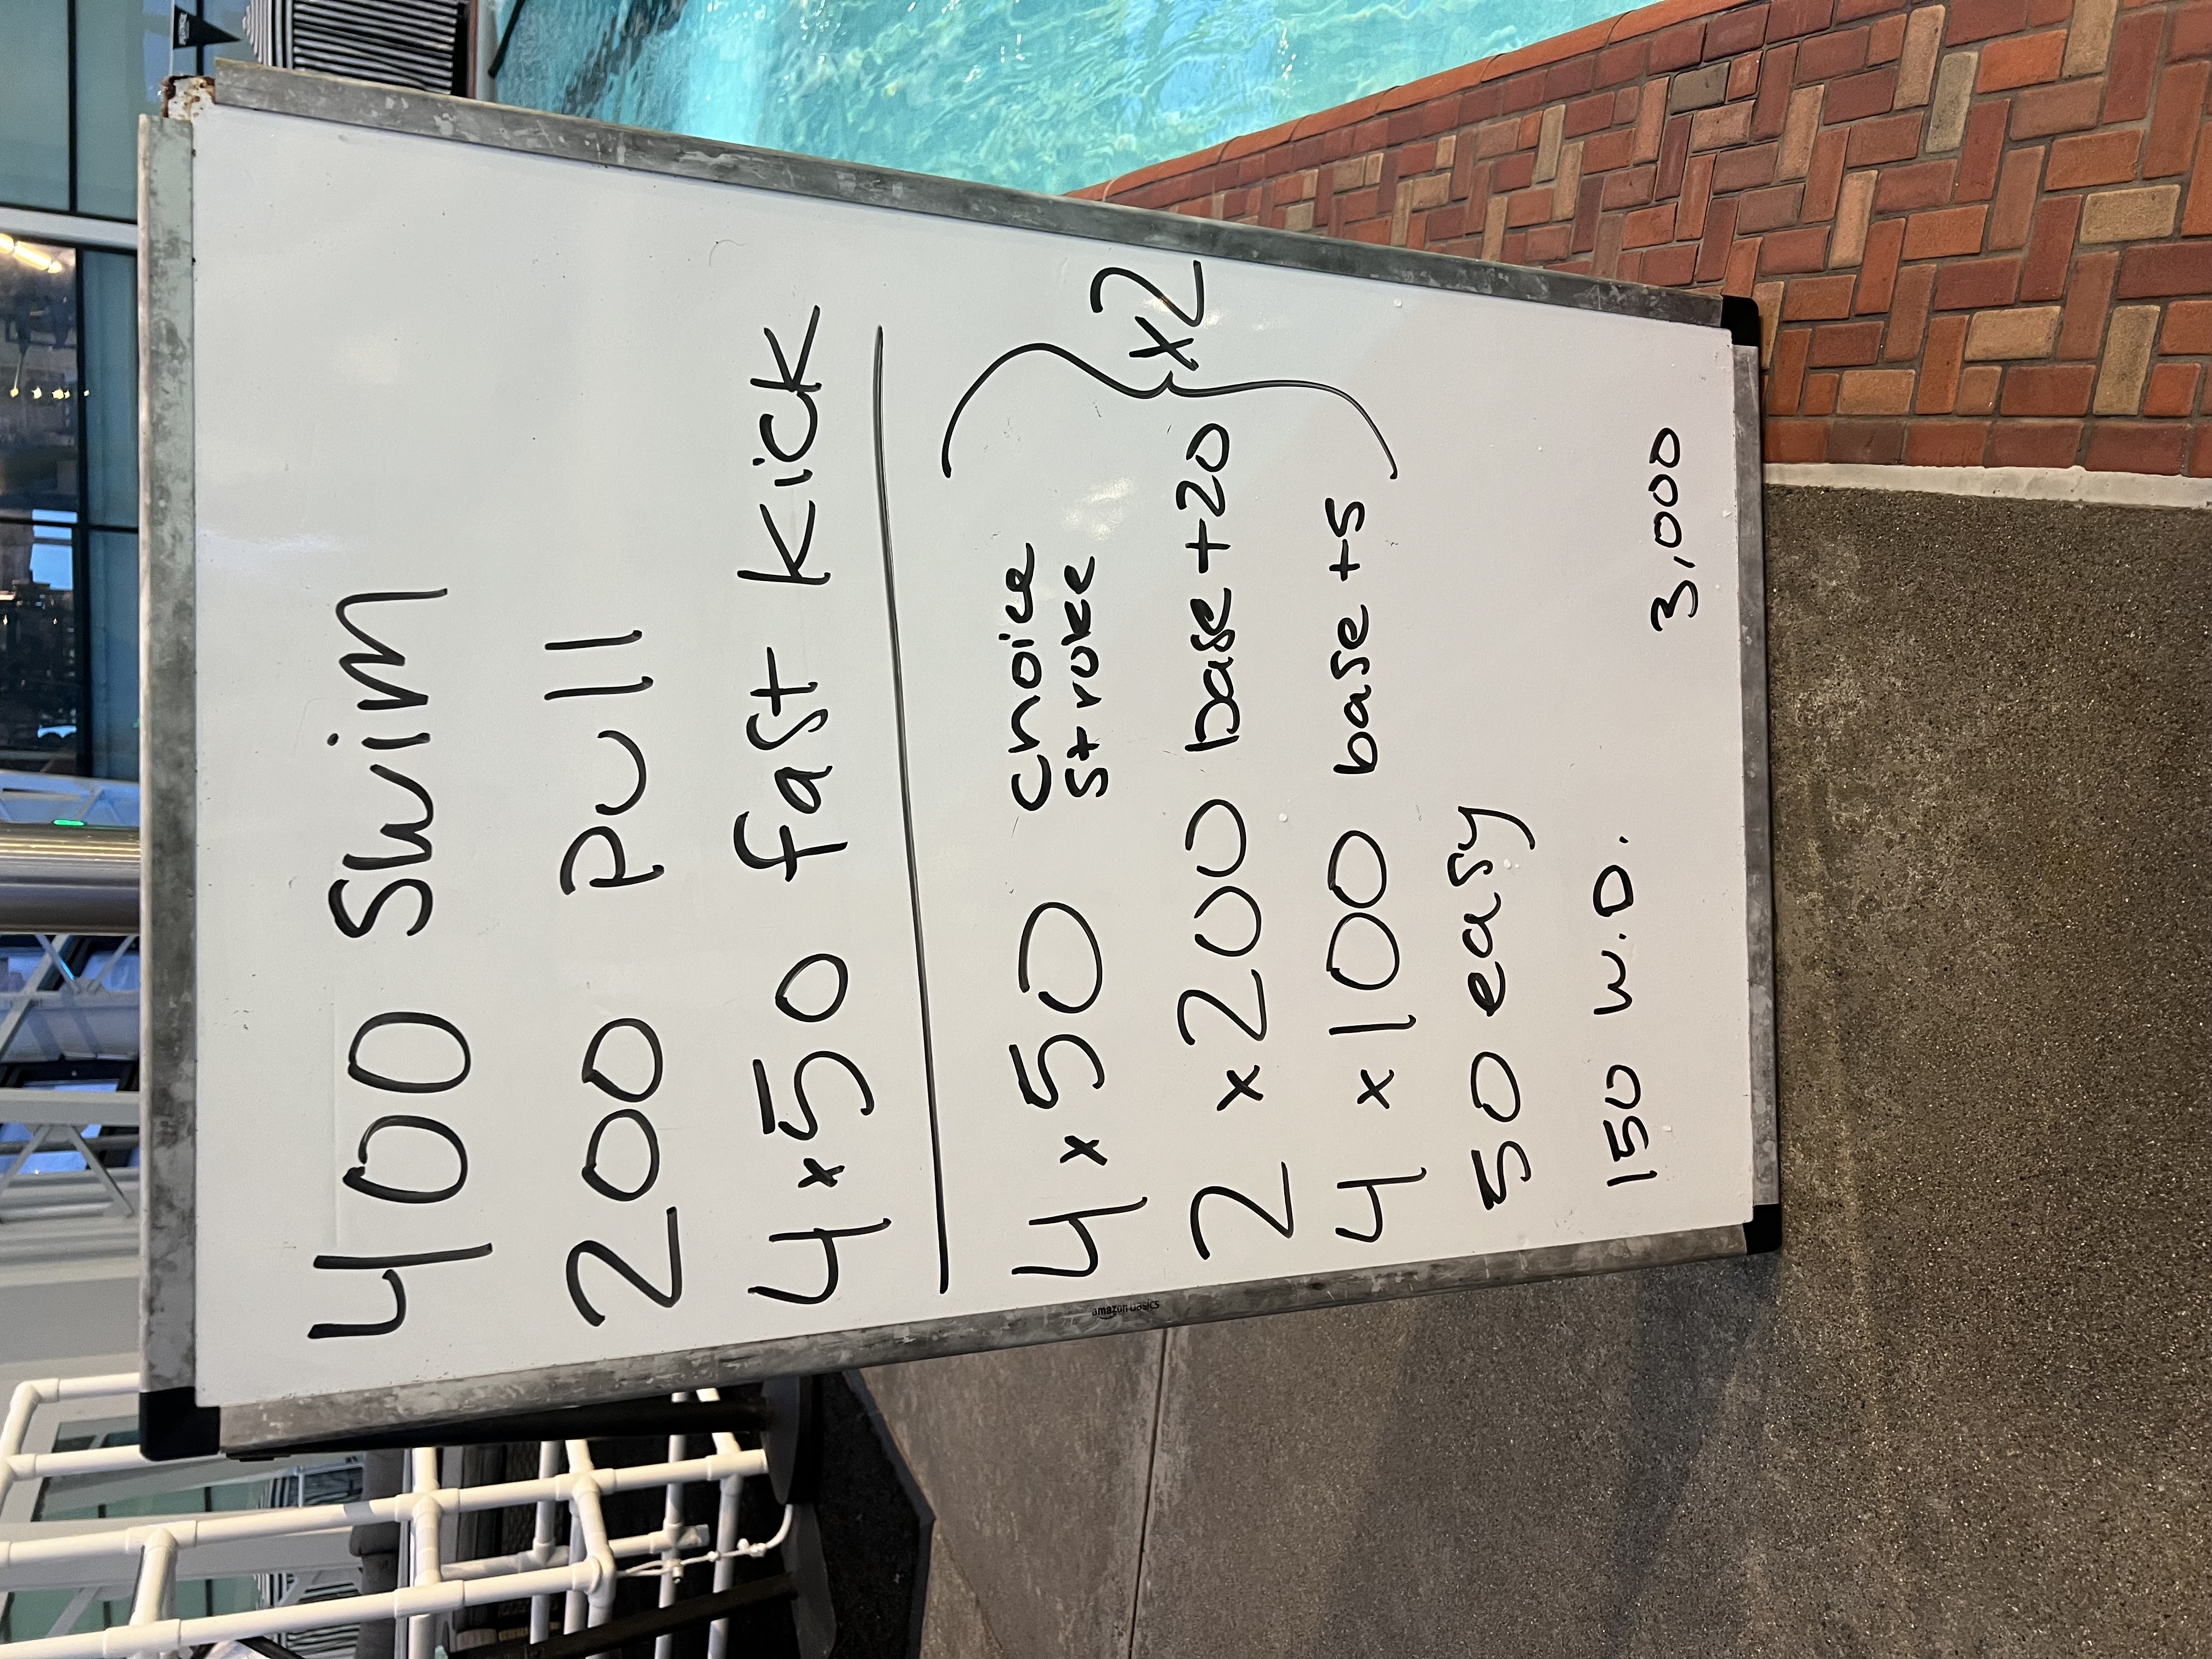 400 Swim
200 pull
4x50 fast kick
4x50 choice
stroke
2x200 base +20
4x100 base +5
x2
50 easy
150 w.D.
3,000
amazon basics